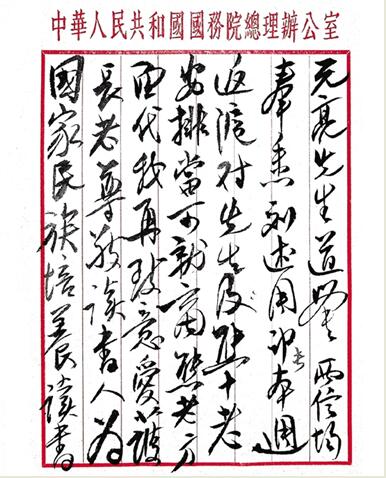 中華人民共和國國務院總理辦公室
元亮先生道鑒 兩信均
奉悉 所述用印 本週
返滬 付先生及熊十老
安排當可就商熊老方
面代我再致意愛護
長老尊敬讀書人為
國家民族培養讀書